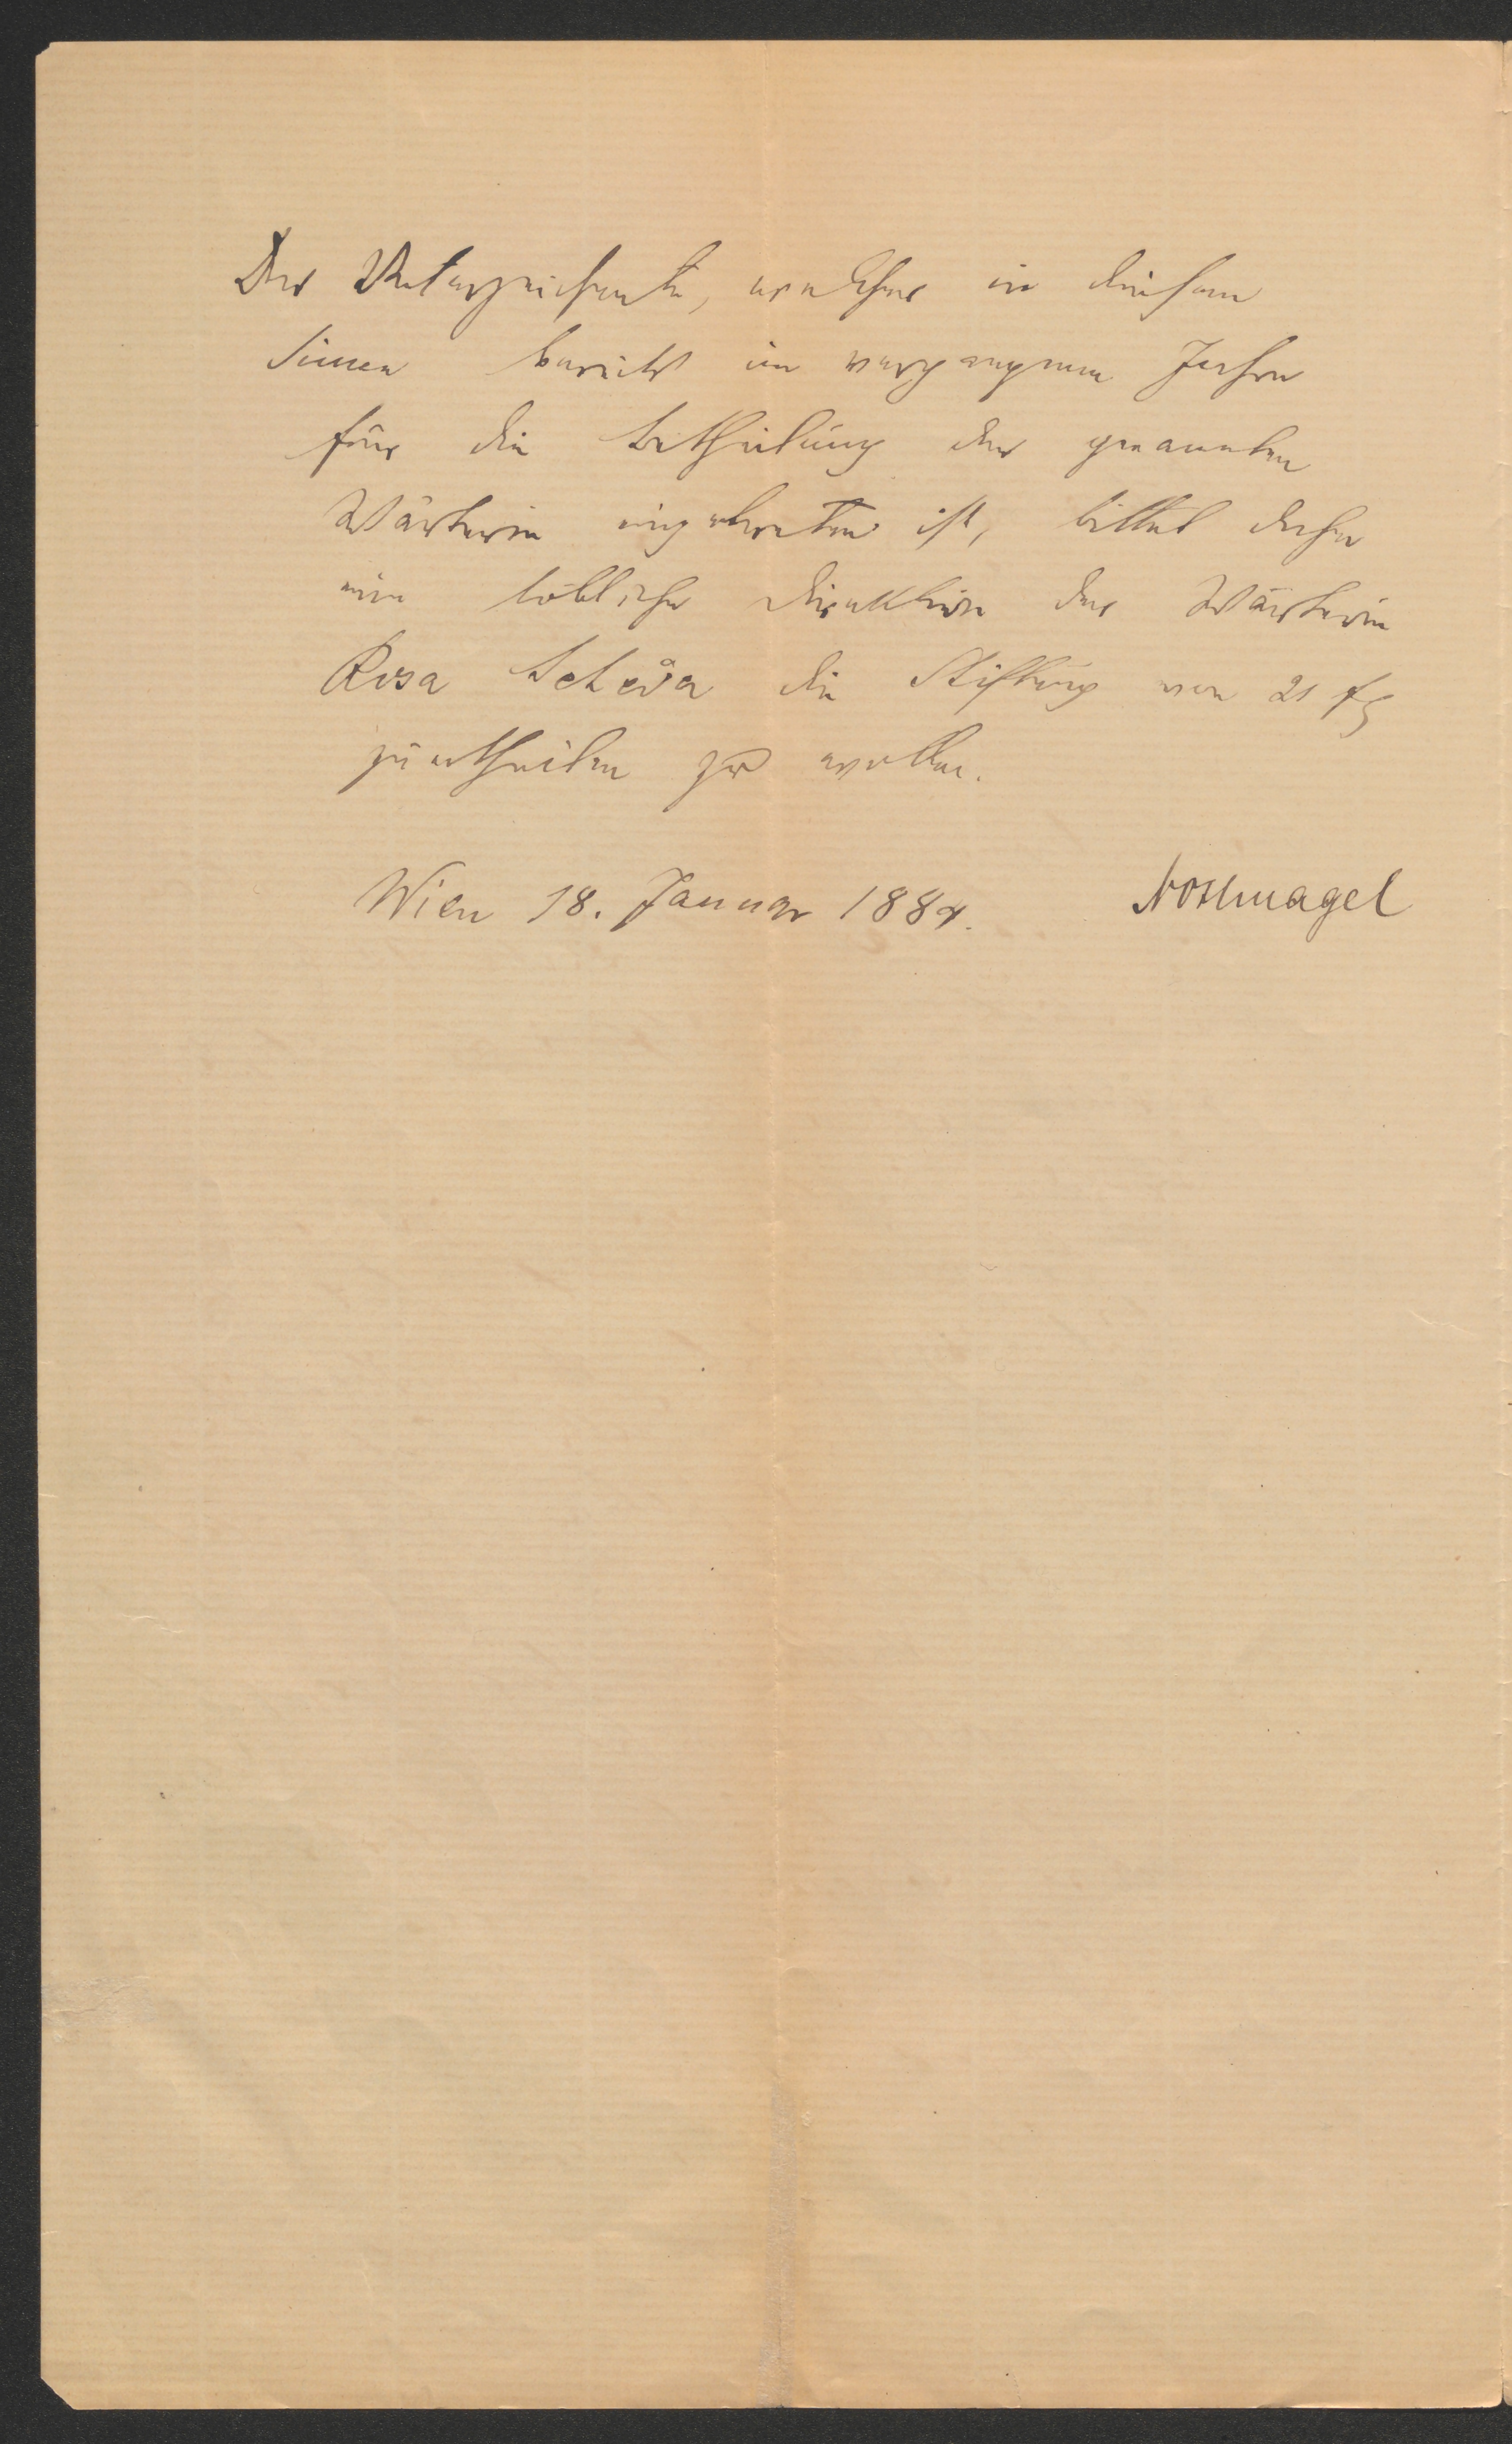 Der Unterzeichnete, welcher in diesem
Sinne bereits im vergangenen Jahre
für die Betheilung der genannten
Wärterin eingetreten ist, bittet daher
eine löbliche Direktion der Wärterin
Rosa die Stiftung von 21 fl
zuertheilen zu wollen.
Wien 18. Januar 1884.
Nothnagel